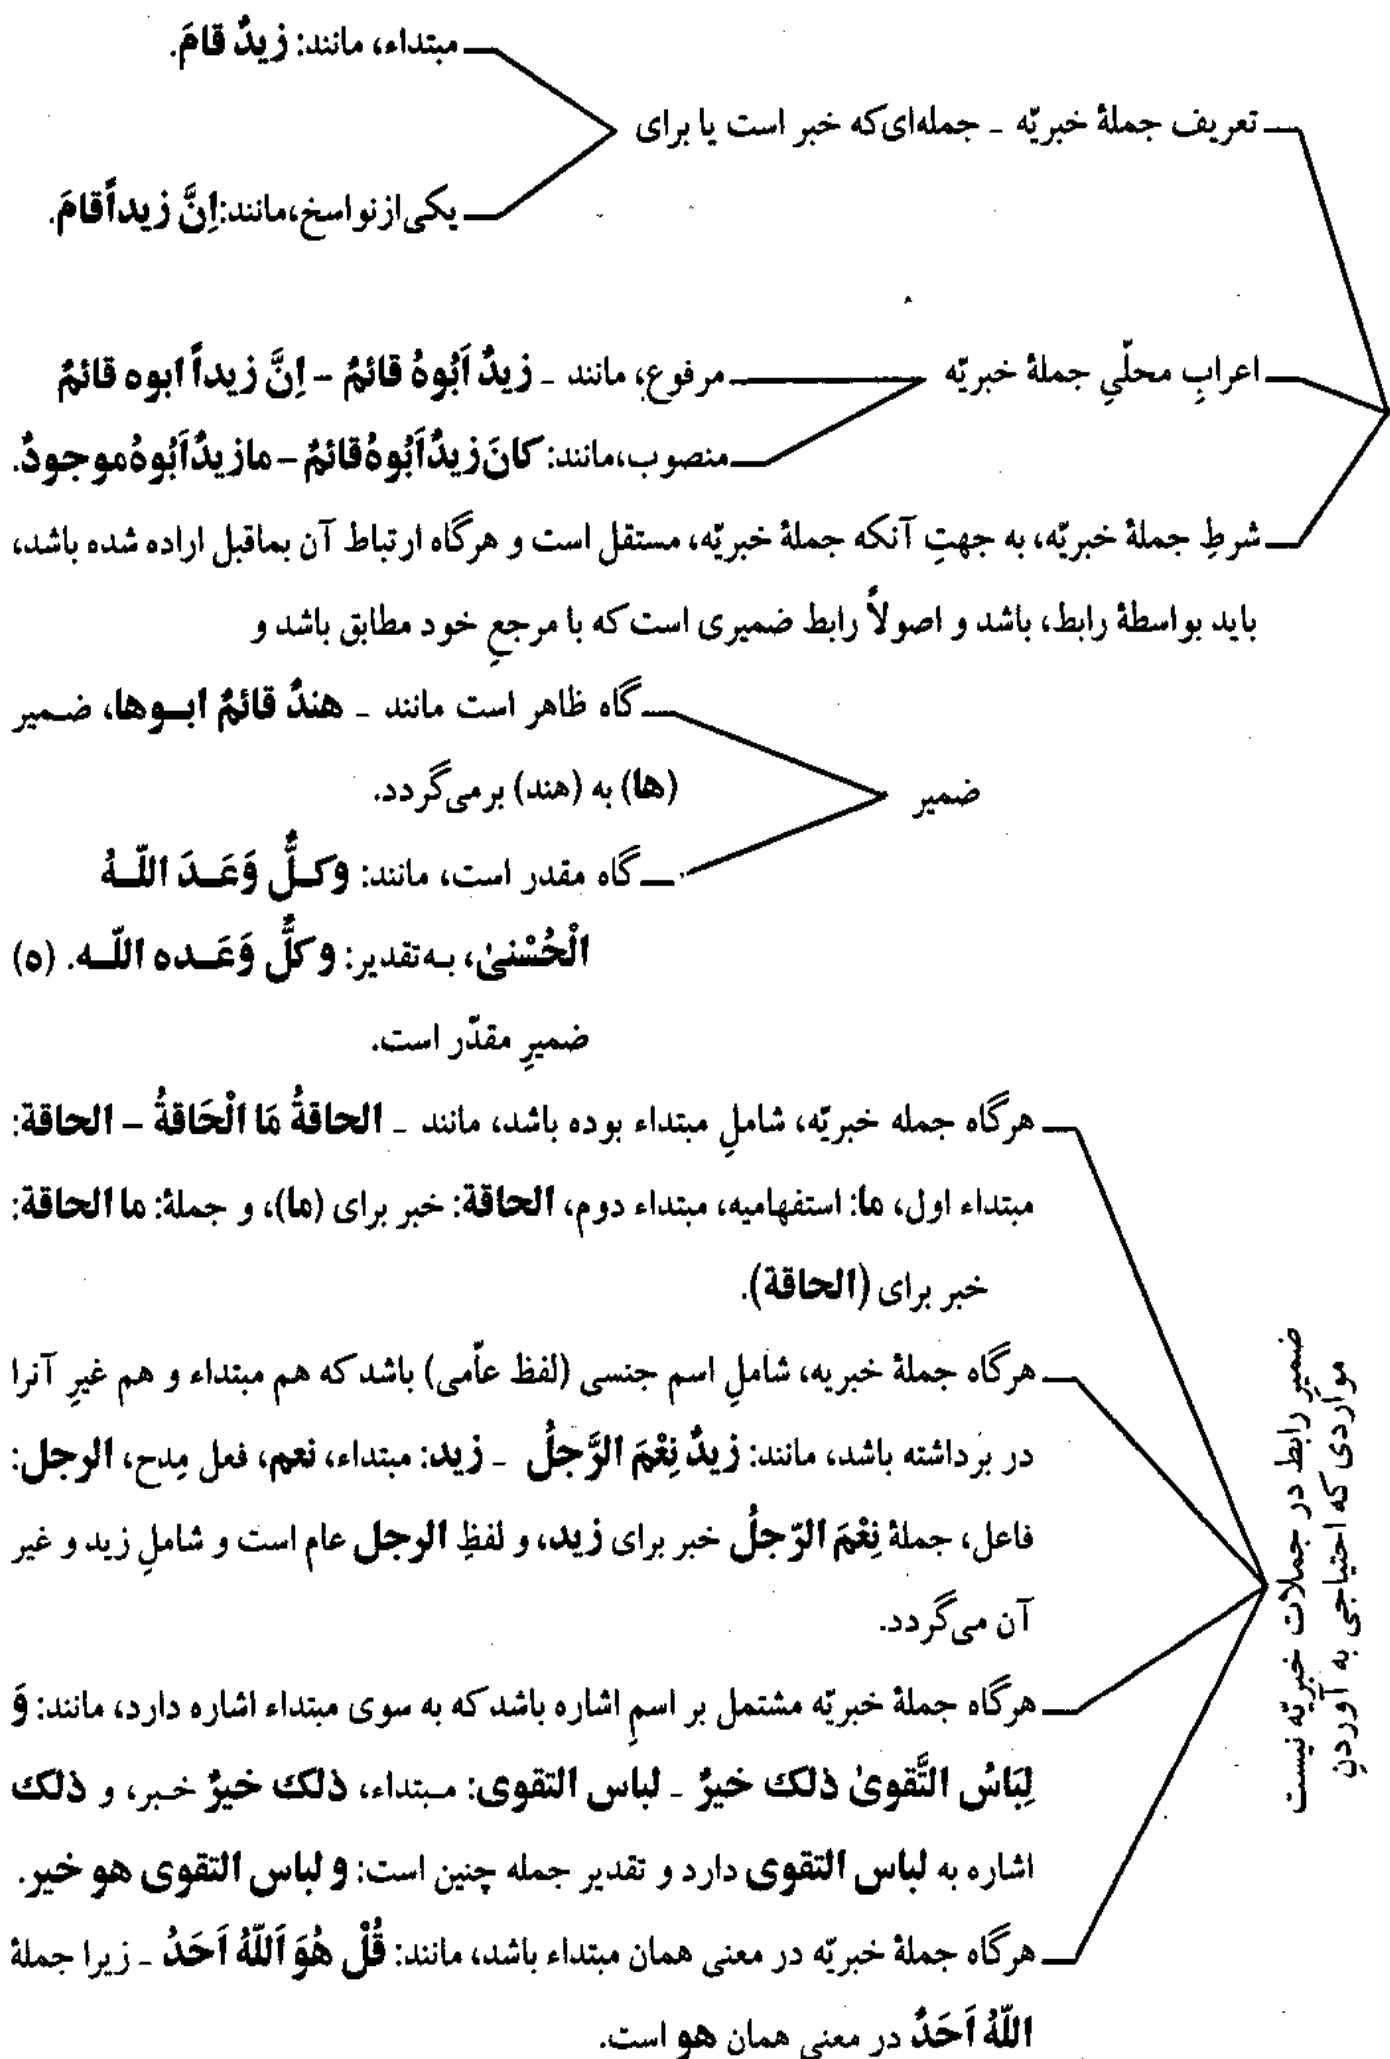 مبتداء، مانند: زیدٌ قامَ.
تعریف جملهٔ خبریّه - جمله‌ای که خبر است یا برای
یکی از نواسخ، مانند: اِنَّ زیداً قامَ.
اعرابِ محلّیِ جملهٔ خبریّه
مرفوع، مانند - زیدٌ اَبُوهُ قائمٌ - اِنَّ زیداً ابوه قائمٌ
منصوب، مانند: کانَ زیدٌ اَبُوهُ قائمٌ - ما زیدٌ اَبُوهُ موجودٌ.
شرطِ جملهٔ خبریّه، به جهتِ آنکه جملهٔ خبریّه، مستقل است و هرگاه ارتباط آن بماقبل اراده شده باشد،
باید بواسطهٔ رابط، باشد و اصولاً رابط ضمیری است که با مرجعِ خود مطابق باشد و
گاه ظاهر است مانند - هندٌ قائمٌ ابوها، ضمیر
(ها) به (هند) برمی‌گردد.
ضمیر
گاه مقدر است، مانند: وکلٌّ وَعَدَ اللّهُ
الْحُسْنیٰ، به تقدیر: وکلٌّ وَعَده اللّه. (ه)
ضمیرِ مقدّر است.
هرگاه جمله خبریّه، شاملِ مبتداء بوده باشد، مانند - الحاقةُ مَا الْحَاقةُ - الحاقة:
مبتداء اول، ما: استفهامیه، مبتداء دوم، الحاقة: خبر برای (ما)، و جملهٔ: ما الحاقة:
خبر برای (الحاقة).
هرگاه جملهٔ خبریه، شاملِ اسم جنسی (لفظ عاّمی) باشد که هم مبتداء و هم غیرِ آنرا
در برداشته باشد، مانند: زیدٌ نِعْمَ الرَّجلُ - زید: مبتداء، نعم، فعل مِدح، الرجل:
فاعل، جملهٔ نِعْمَ الرّجلُ خبر برای زید، و لفظِ الرجل عام است و شاملِ زید و غیر
آن می‌گردد.
هرگاه جملهٔ خبریّه مشتمل بر اسمِ اشاره باشد که به سوی مبتداء اشاره دارد، مانند: وَ
لِبَاسُ التَّقویٰ ذلک خیرٌ - لباس التقوی: مبتداء، ذلک خیرٌ خبر، و ذلک
اشاره به لباس التقوی دارد و تقدیر جمله چنین است: و لباس التقوی هو خیر.
هرگاه جملهٔ خبریّه در معنی همان مبتداء باشد، مانند: قُلْ هُوَ اَللّهُ اَحَدٌ - زیرا جملهٔ
اللّهُ اَحَدٌ در معنی همان هو است.
مواردی که احتیاجی به آوردنِ
ضمیرِ رابط در جملات خبریّه نیست